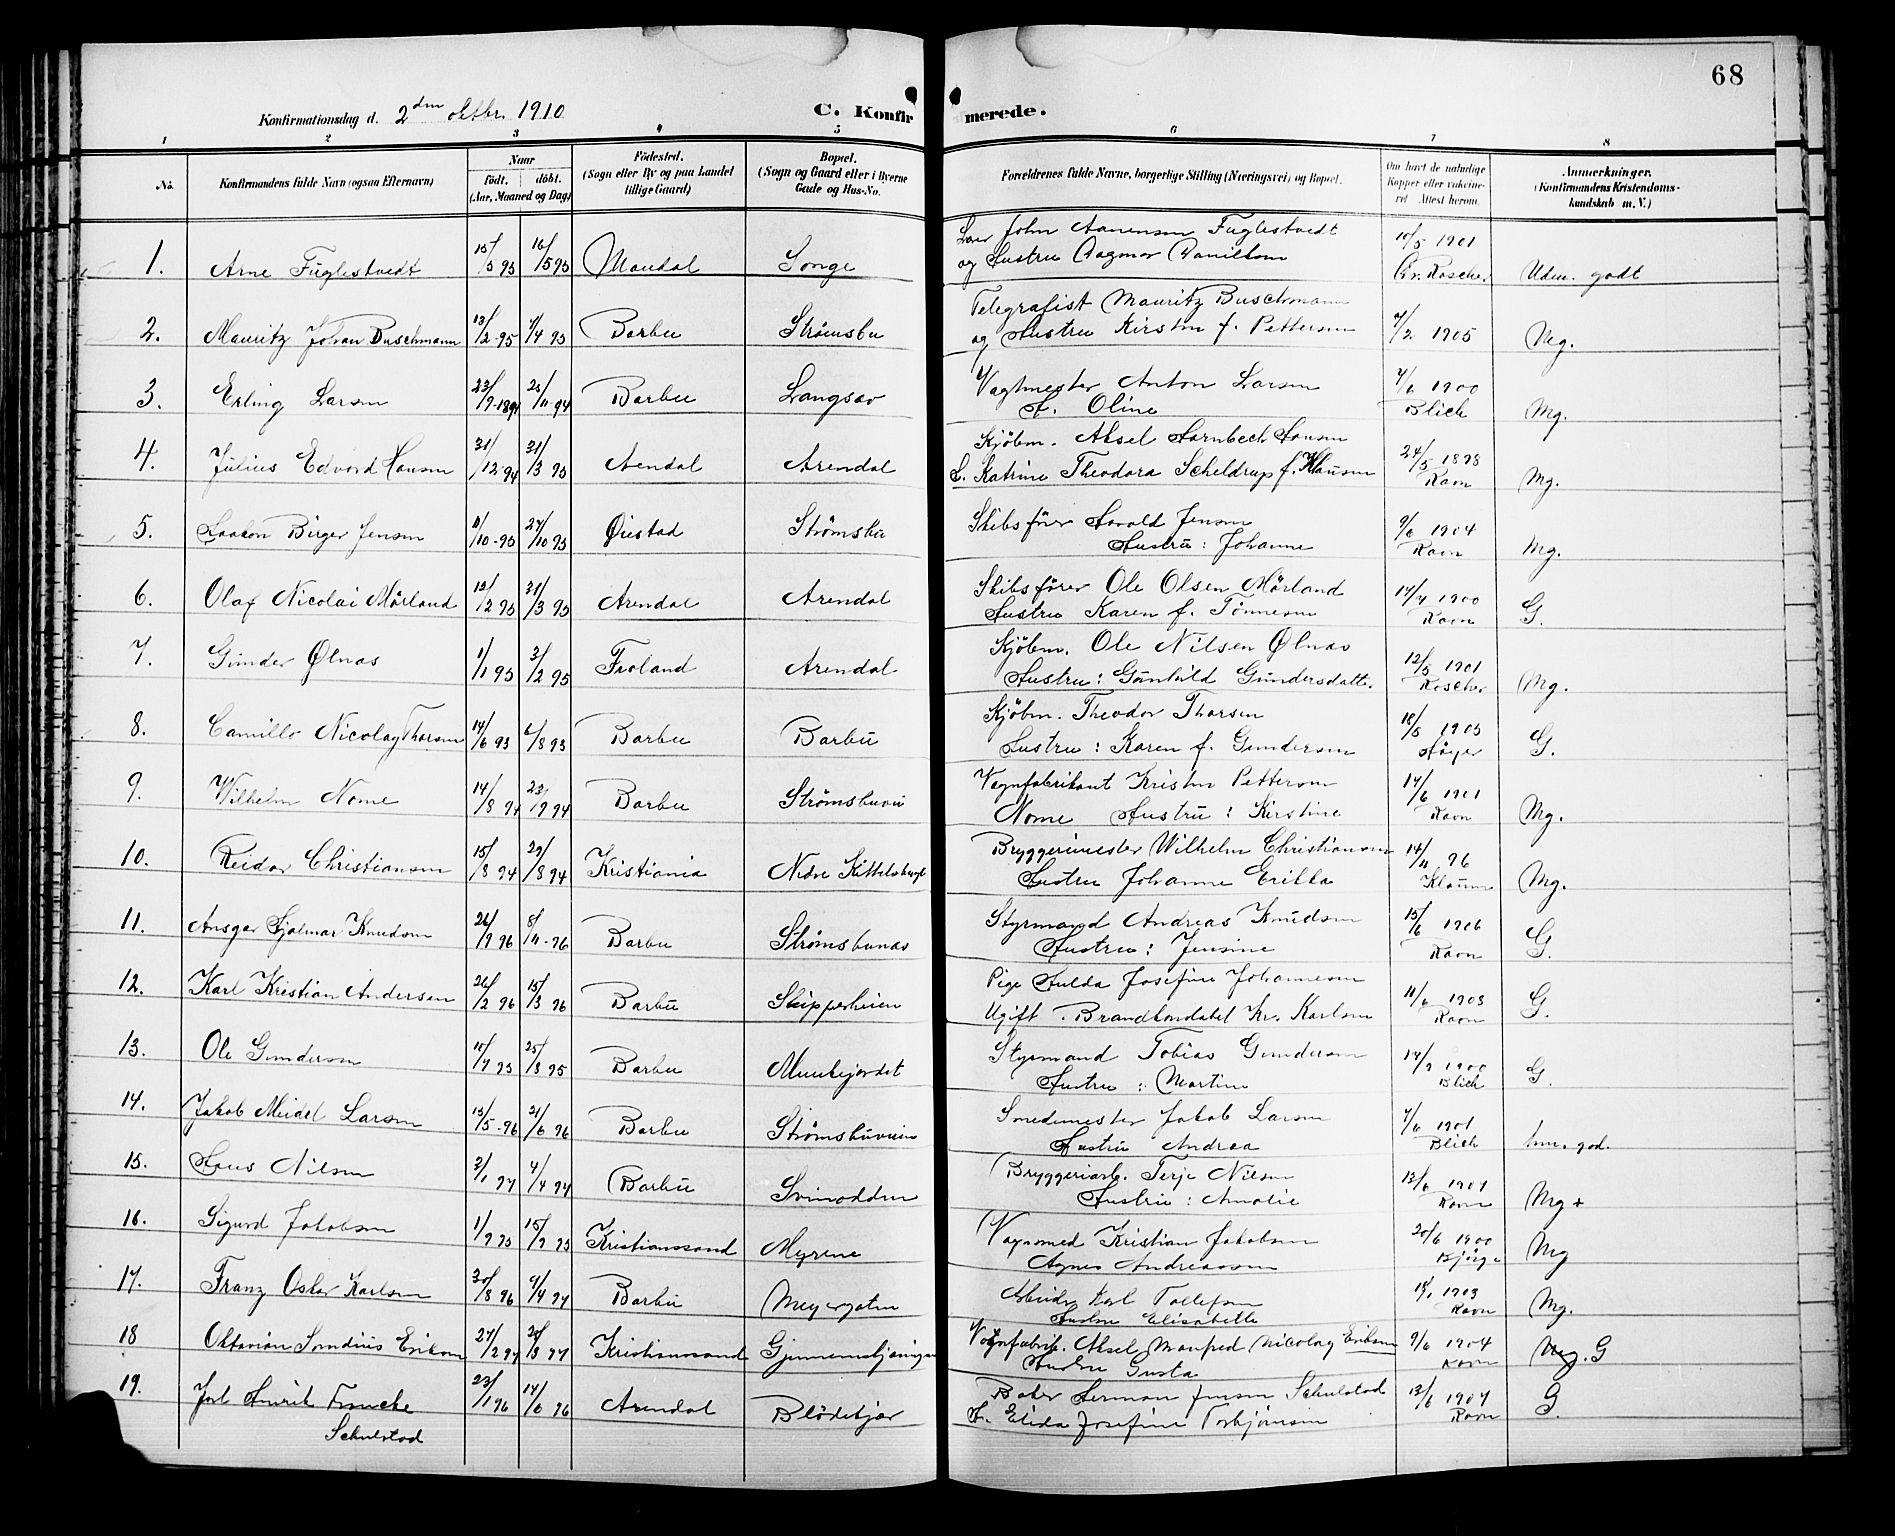 68
Konfirmationsdag d. 2den oktbr. 1910
C. Konfirmerede.
1 2 3 4 5 6 7 8
No. Konfirmandens fulde Navn (ogsaa Efternavn) Naar født. døbt. (Aar, Maaned og Dag) Fødested. (Sogn eller By og paa Landet tillige Gaard) Bopæl. (Sogn og Gaard eller i Byerne Gade og Hus-No. Forældrenes fulde Navne, borgerlige Stilling (Næringsvei) og Bopæl. Om havt de naturlige Kopper eller vakcineret Attest herom. Anmerkninger. (Konfirmandens Kristendomskundskab m. V.)
1. Arne Fuglestvedt 15/5 95 16/5 95 Mandal Songe John Aanensen Fuglestvedt 10/5 1901
og Hustru Dagmar Danielsen Chr. Roscher. Udm. godt
2. Mauritz Johan Buschmann 13/2-95 7/4 95 Barbu Strømsbu Telegrafist Mauritz Buschmann
og Hustru Kirsten f. Pettersen 7/2 1905 Mg.
3. Erling Larsen 23/9-1894 25/11-94 Barbu Langsæv Vagtmester Anton Larsen 7/6 1900
H. Oline Blich Mg.
4. Julius Edvard Hansen 31/12-94 31/3 95 Arendal Arendal Kjøbm. Aksel Hornbech Hansen 24/5 1898
H. Katrine Theodora Scheldrup f. Klausen Ravn Mg.
5. Haakon Birger Jensen 11/10-95 27/10 95 Øiestad Strømsbu Skibsfører Harald Jensen 9/6 1904
Hustru: Johanne Ravn Mg.
6. Olaf Nicolai Mørland 12/2 95 31/3 95 Arendal Arendal Skibsfører Ole Olsen Mørland 14/4 1900
Hustru Karen f. Tønnesen Ravn G.
7. Gunder Ølnæs 1/1 95 3/2 95 Froland Arendal Kjøbm. Ole Nilsen Ølnæs 12/5 1901
Hustru: Gunhild Gundersdatter Roscher Mg.
8. Camillo Nicolay Thorsen 14/6 95 6/8 95 Barbu Barbu Kjøbm. Theodor Thorsen 18/5 1905
Hustru: Karen f. Gundersen Høyer G.
9. Wilhelm Nome 14/8 94 23/9 94 Barbu Strømsbuvei Vognfabrikant Kristen Pettersen 14/6 1901
Nome Hustru: Kirstine Ravn Mg.
10. Reidar Christiansen 15/8 94 29/8 94 Kristiania Nedre Kittelsbugt Bryggerimester Wilhelm Christiansen 14/11 96
Hustru Johanne Erikka Mg.
11. Ansgar Hjalmar Knudsen 26/9 96 8/11-96 Barbu Strømsbunæs Styrmand Andreas Knudsen 15/6 1906
Hustru: Jensine Ravn G.
12. Karl Kristian Andersen 26/2 96 15/3 96 Barbu Skipperheien Pige Hulda Josefine Johannesen 11/6 1903
Ugift. Brandkonstabel Kr. Karlsen Ravn G.
13. Ole Gundersen 10/7 95 25/8 95 Barbu Munkejordet Styrmand Tobias Gundersen 14/9 1900
Hustru: Martine Blich G.
14. Jakob Meidel Larsen 13/5-96 21/6 96 Barbu Strømsbuveien Smedemester Jakob Larsen 7/6 1901
Hustru Andrea Blich
15. Hans Nilsen 2/1 94 4/4 94 Barbu Svinodden Bryggeriarb. Terje Nilsen 12/6 1901
Hustru: Amalie Ravn Mg+
16. Sigurd Jakobsen 1/9 95 15/9 95 Kristianssand Myrene Vognsmed Kristian Jakobsen 20/6 1900
Agnes Andreassen Bjørge Mg
17. Franz Oskar Karlsen 30/8 96 4/4 97 Barbu Meyergaten Arbeider Karl Tollefsen 1903
Hustru Elisabeth Ravn Mg.
18 Oktavian Sundius Eriksen 27/2 97 28/3 97 Kristianssand Gjennemskjæringen Vognfabrik. Aksel Manfred Nicolay Eriksen 9/6 1904
Hustru Gusta Ravn Mg. G
19. Henrik Francke 23/1 96 14/6 96 Arendal Blødekjær Bager Herman Jensen Schulstad 12/6 1907
Schulstad H. Elida Josefine Torbjørnsen Ravn G.